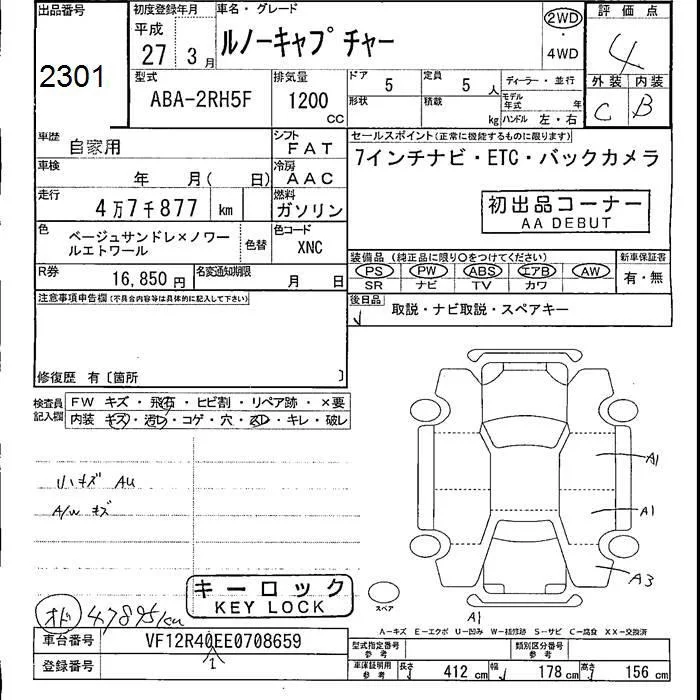 出品番号
2301
初度登録年月
平成
27 3月
車名・グレード
ルノーキャプチャー
2WD
・
4WD
評価点
4
外装 内装
C B
型式
ABA-2RH5F
排気量
1200
CC
ドア 5
定員 5人
形状
積載 kg
ディーラー・並行
モデル年式 年
ハンドル 左・右
車歴 自家用
シフト FAT
車検 年 月( 日)
冷房 AAC
走行 4万7千877 km
燃料 ガソリン
色 ベージュサンドレ×ノワールエトワール
色替
色コード XNC
R券 16,850円
名変通知期限 月 日
セールスポイント(正常に機能するものに限ります)
7インチナビ・ETC・バックカメラ
初出品コーナー
AA DEBUT
装備品(純正品に限り○をつけてください)
PS PW ABS エアB AW
SR ナビ TV カワ
新車保証書
有・無
後日品
取説・ナビ取説・スペアキー
注意事項申告欄(不具合内容等は具体的に記入して下さい)
修復歴 有〔箇所 〕
検査員記入欄
FW キズ・飛石・ヒビ割・リペア跡・×要
内装 キズ・汚レ・コゲ・穴・スレ・キレ・破レ
小キズ AU
A/W キズ
A1
A1
A3
A1
スペア
キーロック
KEY LOCK
オド 47895km
A―キズ E―エクボ U―凹み W―補修跡 S―サビ C―腐食 XX―交換済
車台番号 VF12R40EE0708659
1
登録番号
型式指定番号 参考
類別区分番号 参考
車庫証明用 参考
長さ 412 cm
幅 178 cm
高さ 156 cm